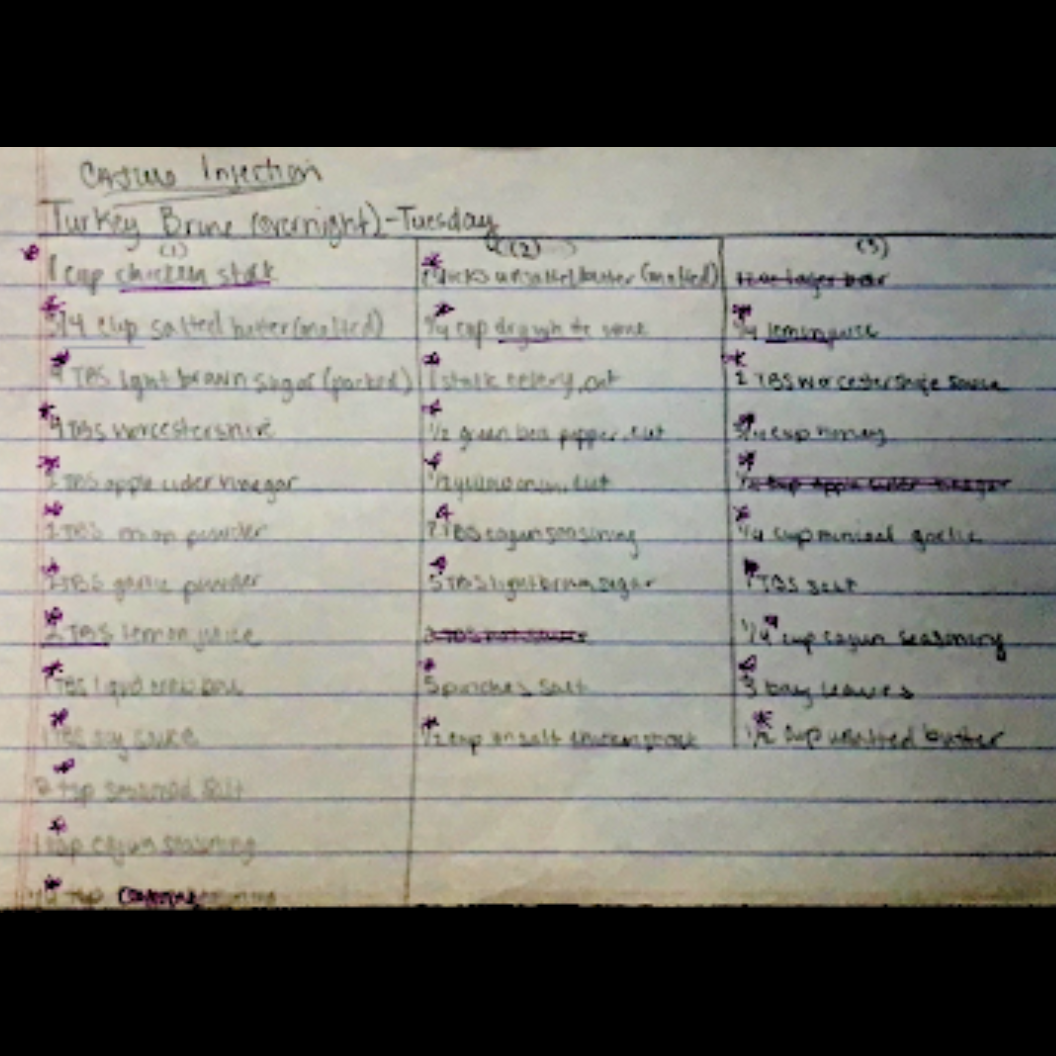 Cajun Injection
Turkey Brine (overnight)-Tuesday
(1)
1 cup chicken stock
3/4 cup salted butter (melted)
TBS light brown sugar (packed)
TBS worcestershire
TBS apple cider vinegar
TBS onion powder
TBS garlic powder
2 TBS lemon juice
1 TBS liquid crab boil
1 TBS soy sauce
2 tsp seasoned salt
1 tsp cajun seasoning
tsp
(2)
sticks unsalted butter (melted)
3/4 cup dry white wine
1 stalk celery, cut
1/2 green bell pepper, cut
1/2 yellow onion, cut
2 TBS cajun seasoning
5 TBS light brown sugar
2 TBS hot sauce
5 pinches salt
1/2 cup unsalt chicken stock
(3)
12 oz lager beer
1/4 lemon juice
2 TBS worcestershire sauce
3/4 cup honey
cup apple cider vinegar
1/4 cup minced garlic
1 TBS salt
1/4 cup cajun seasoning
3 bay leaves
1/2 cup unsalted butter